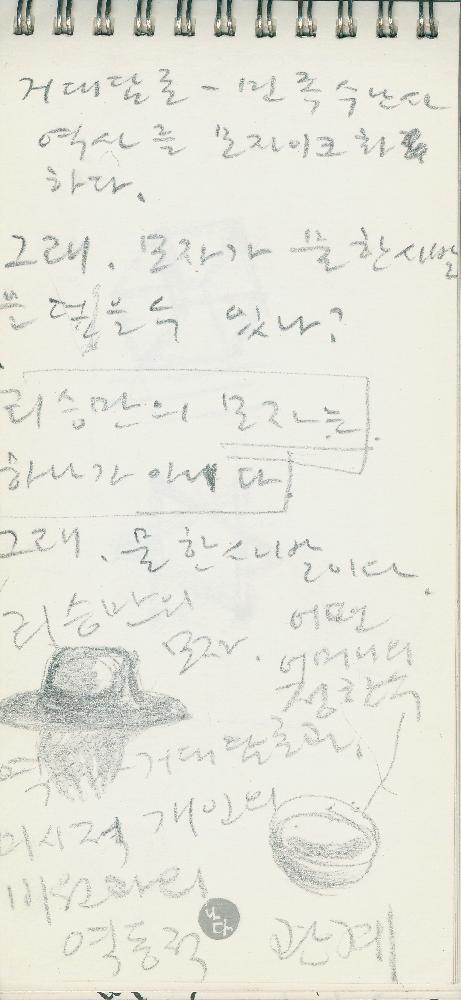 거대담론 - 민족수난사
역사를 모자이크화
하다.
그래. 모자가 물 한 사발
을 수 있나?
리승만의 모자는
하나가 아니다.
그래. 물 한 사발이다.
리승만의
모자.
어떤
어머니의
정화수
역사 거대담론과
미시적 개인의
역동적 관계
나다